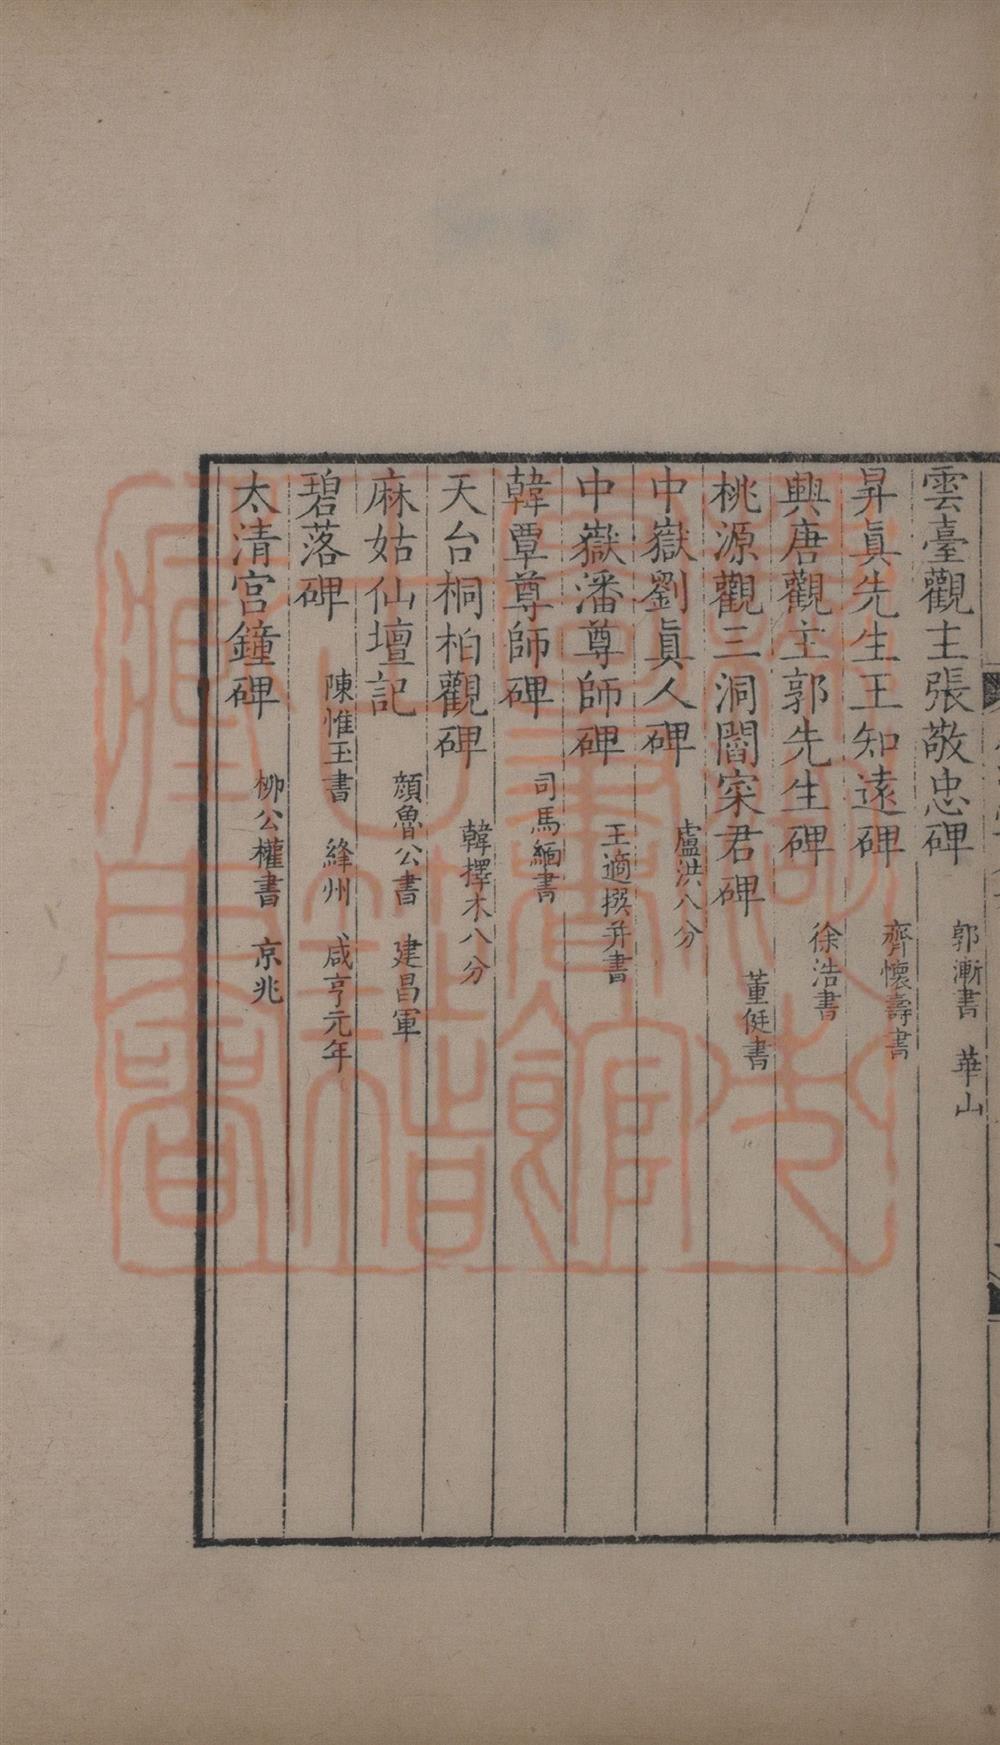 雲臺觀主張敬忠碑 郭漸書 華山
昇眞先生王知遠碑 齊懷壽書
興唐觀主郭先生碑 徐浩書
桃源觀三洞閻寀君碑 董侹書
中嶽劉眞人碑 盧洪八分
中嶽潘尊師碑 王適撰并書
韓覃尊師碑 司馬緬書
天台桐柏觀碑 韓擇木八分
麻姑仙壇記 顔魯公書 建昌軍
碧落碑 陳惟玉書 絳州 咸亨元年
太清宮鐘碑 柳公權書 京兆